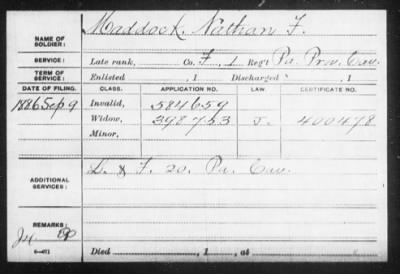 NAME OF SOLDIER: Maddock, Nathan F.
SERVICE: Late rank, Co. F, 1 Reg't Pa. Prov. Cav.
TERM OF SERVICE: Enlisted , 1 Discharged , 1
DATE OF FILING. CLASS. APPLICATION NO. LAW. CERTIFICATE NO.
1886 Sep 9 Invalid, 584659
Widow, 398753 J. 400478
Minor,
ADDITIONAL SERVICES: L. & F. 20. Pa. Cav.
REMARKS:
Died , 1 , at